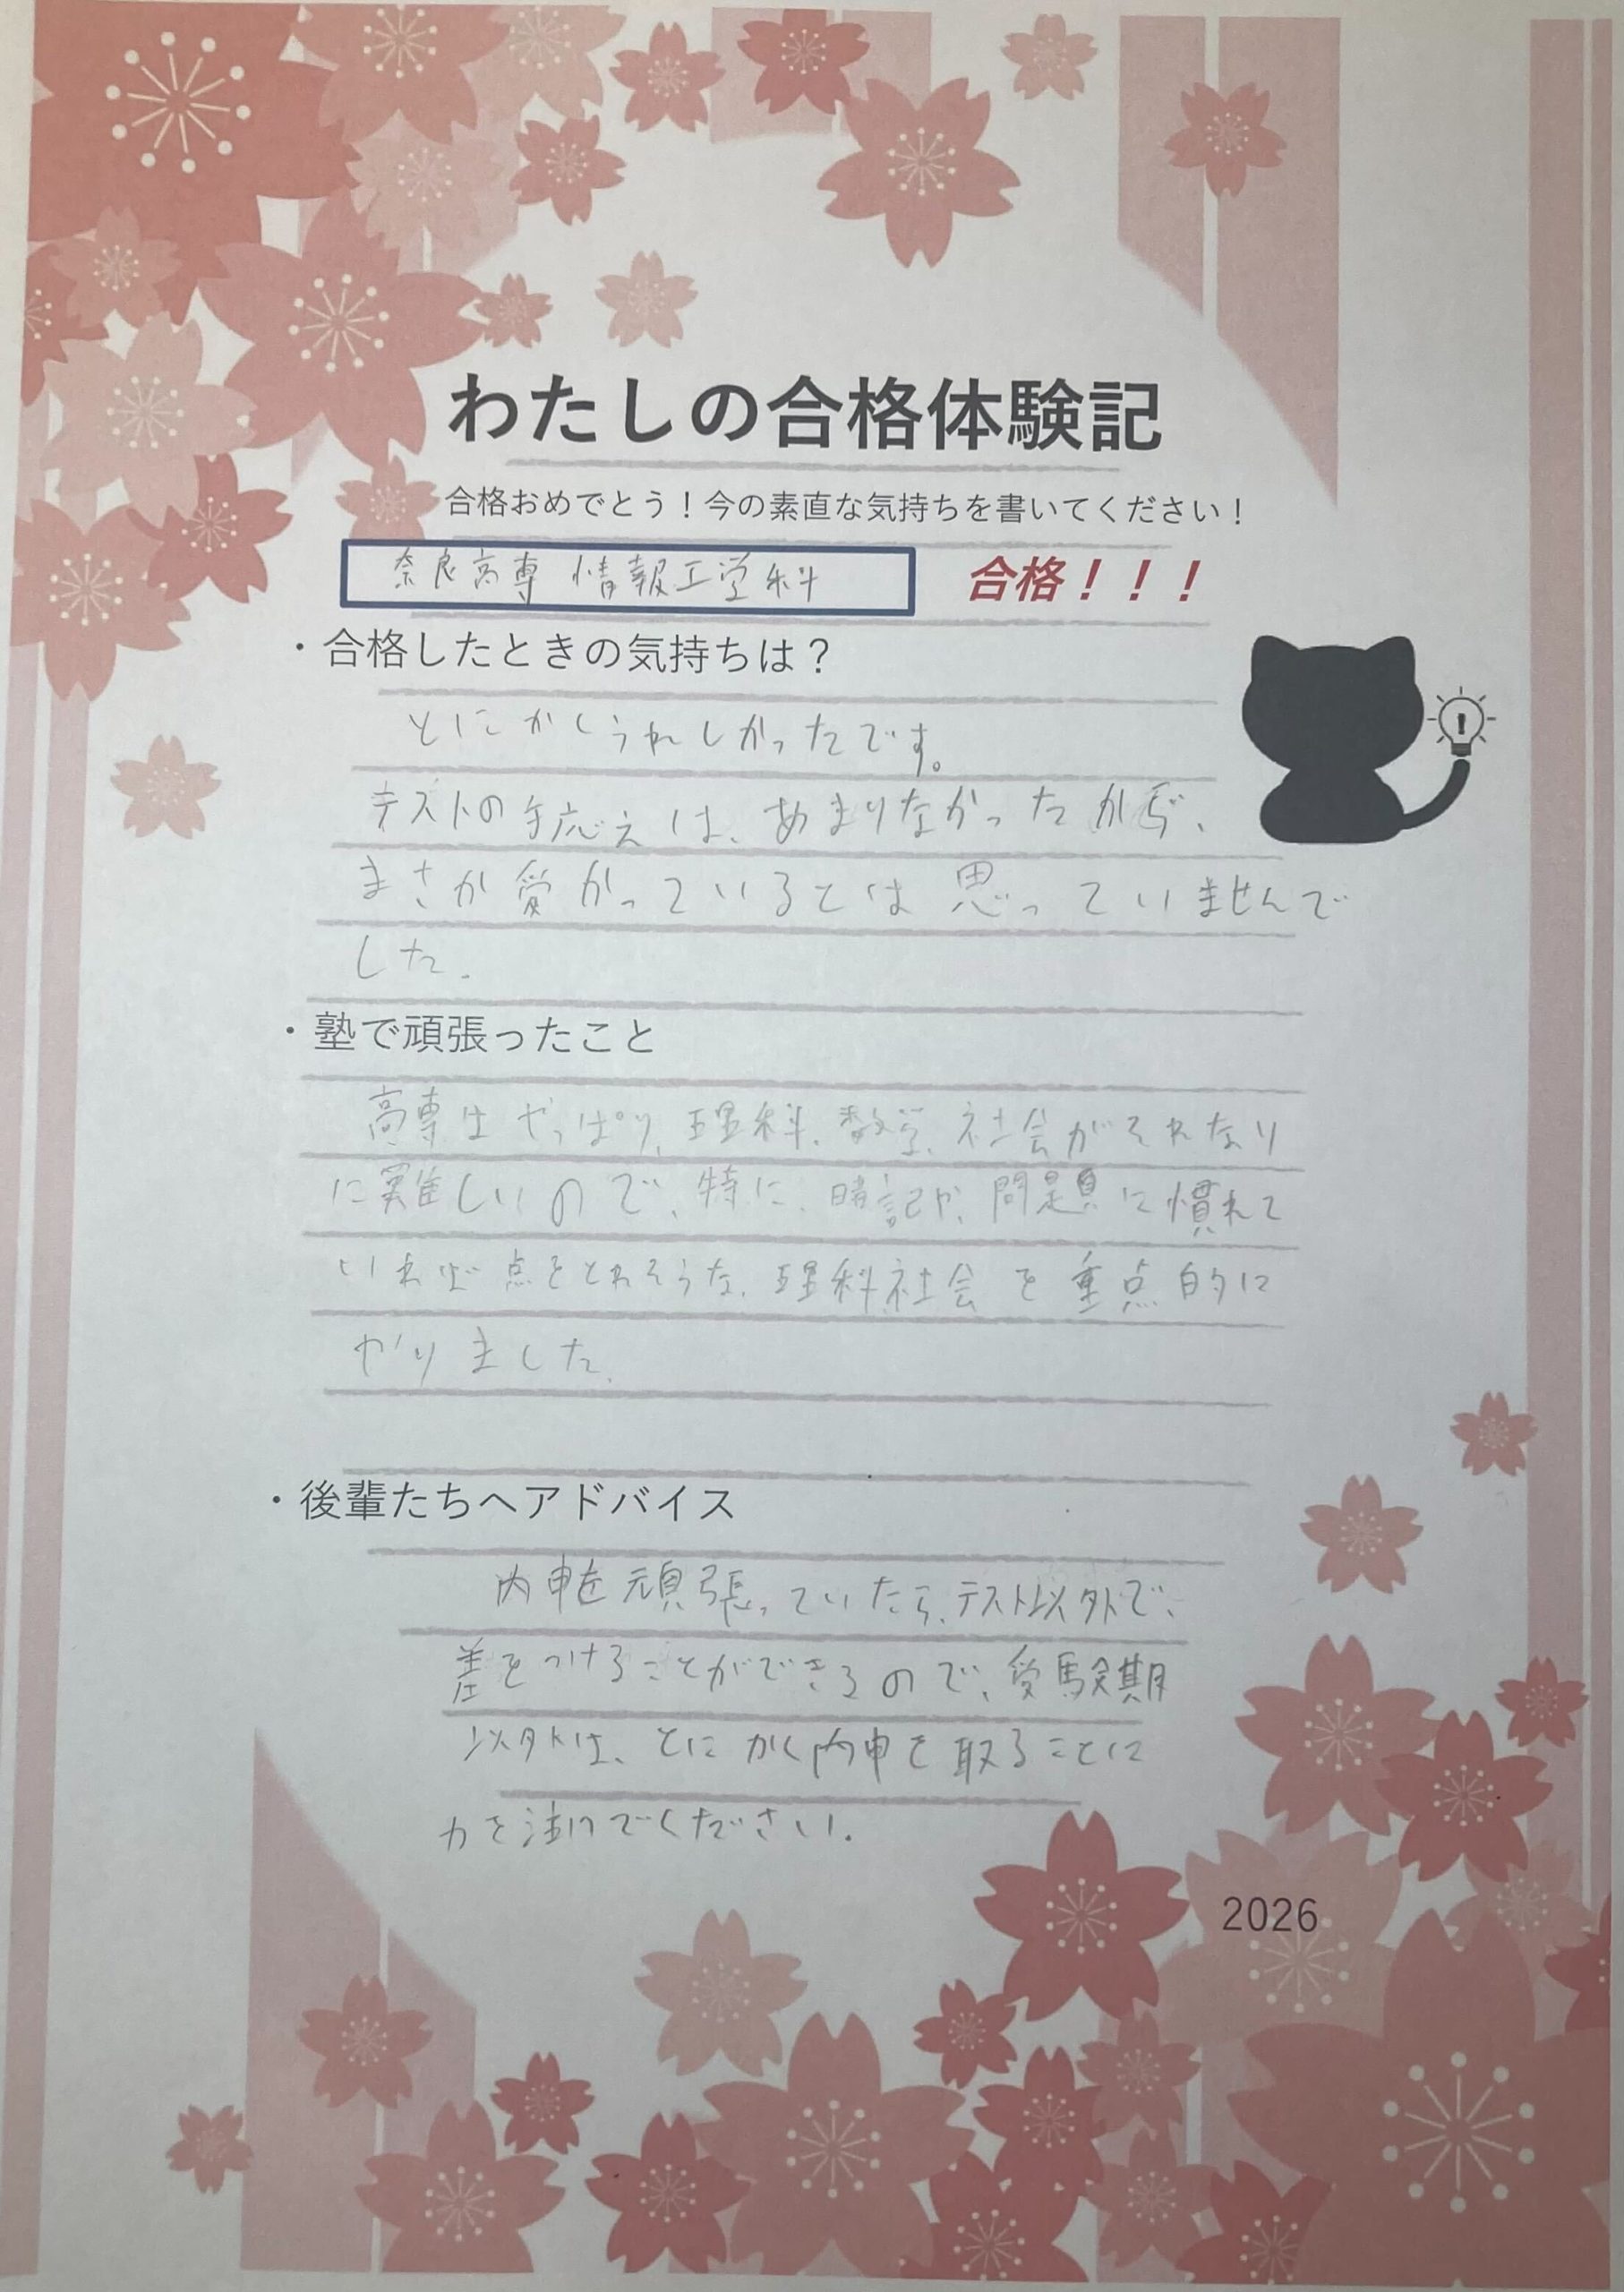 わたしの合格体験記
合格おめでとう！今の素直な気持ちを書いてください！
奈良高専 情報工学科 合格！！！
・合格したときの気持ちは？
とにかくうれしかったです。
テストの手応えは、あまりなかったから、
まさか受かっているとは思っていませんで
した。
・塾で頑張ったこと
高専はやっぱり、理科、数学、社会がそれなり
に難しいので、特に、暗記や、問題に慣れて
いれば点をとれそうな、理科社会を重点的に
やりました。
・後輩たちへアドバイス
内申を頑張っていたら、テスト以外で、
差をつけることができるので、受験期
以外は、とにかく内申を取ることに
力を注いでください。
2026